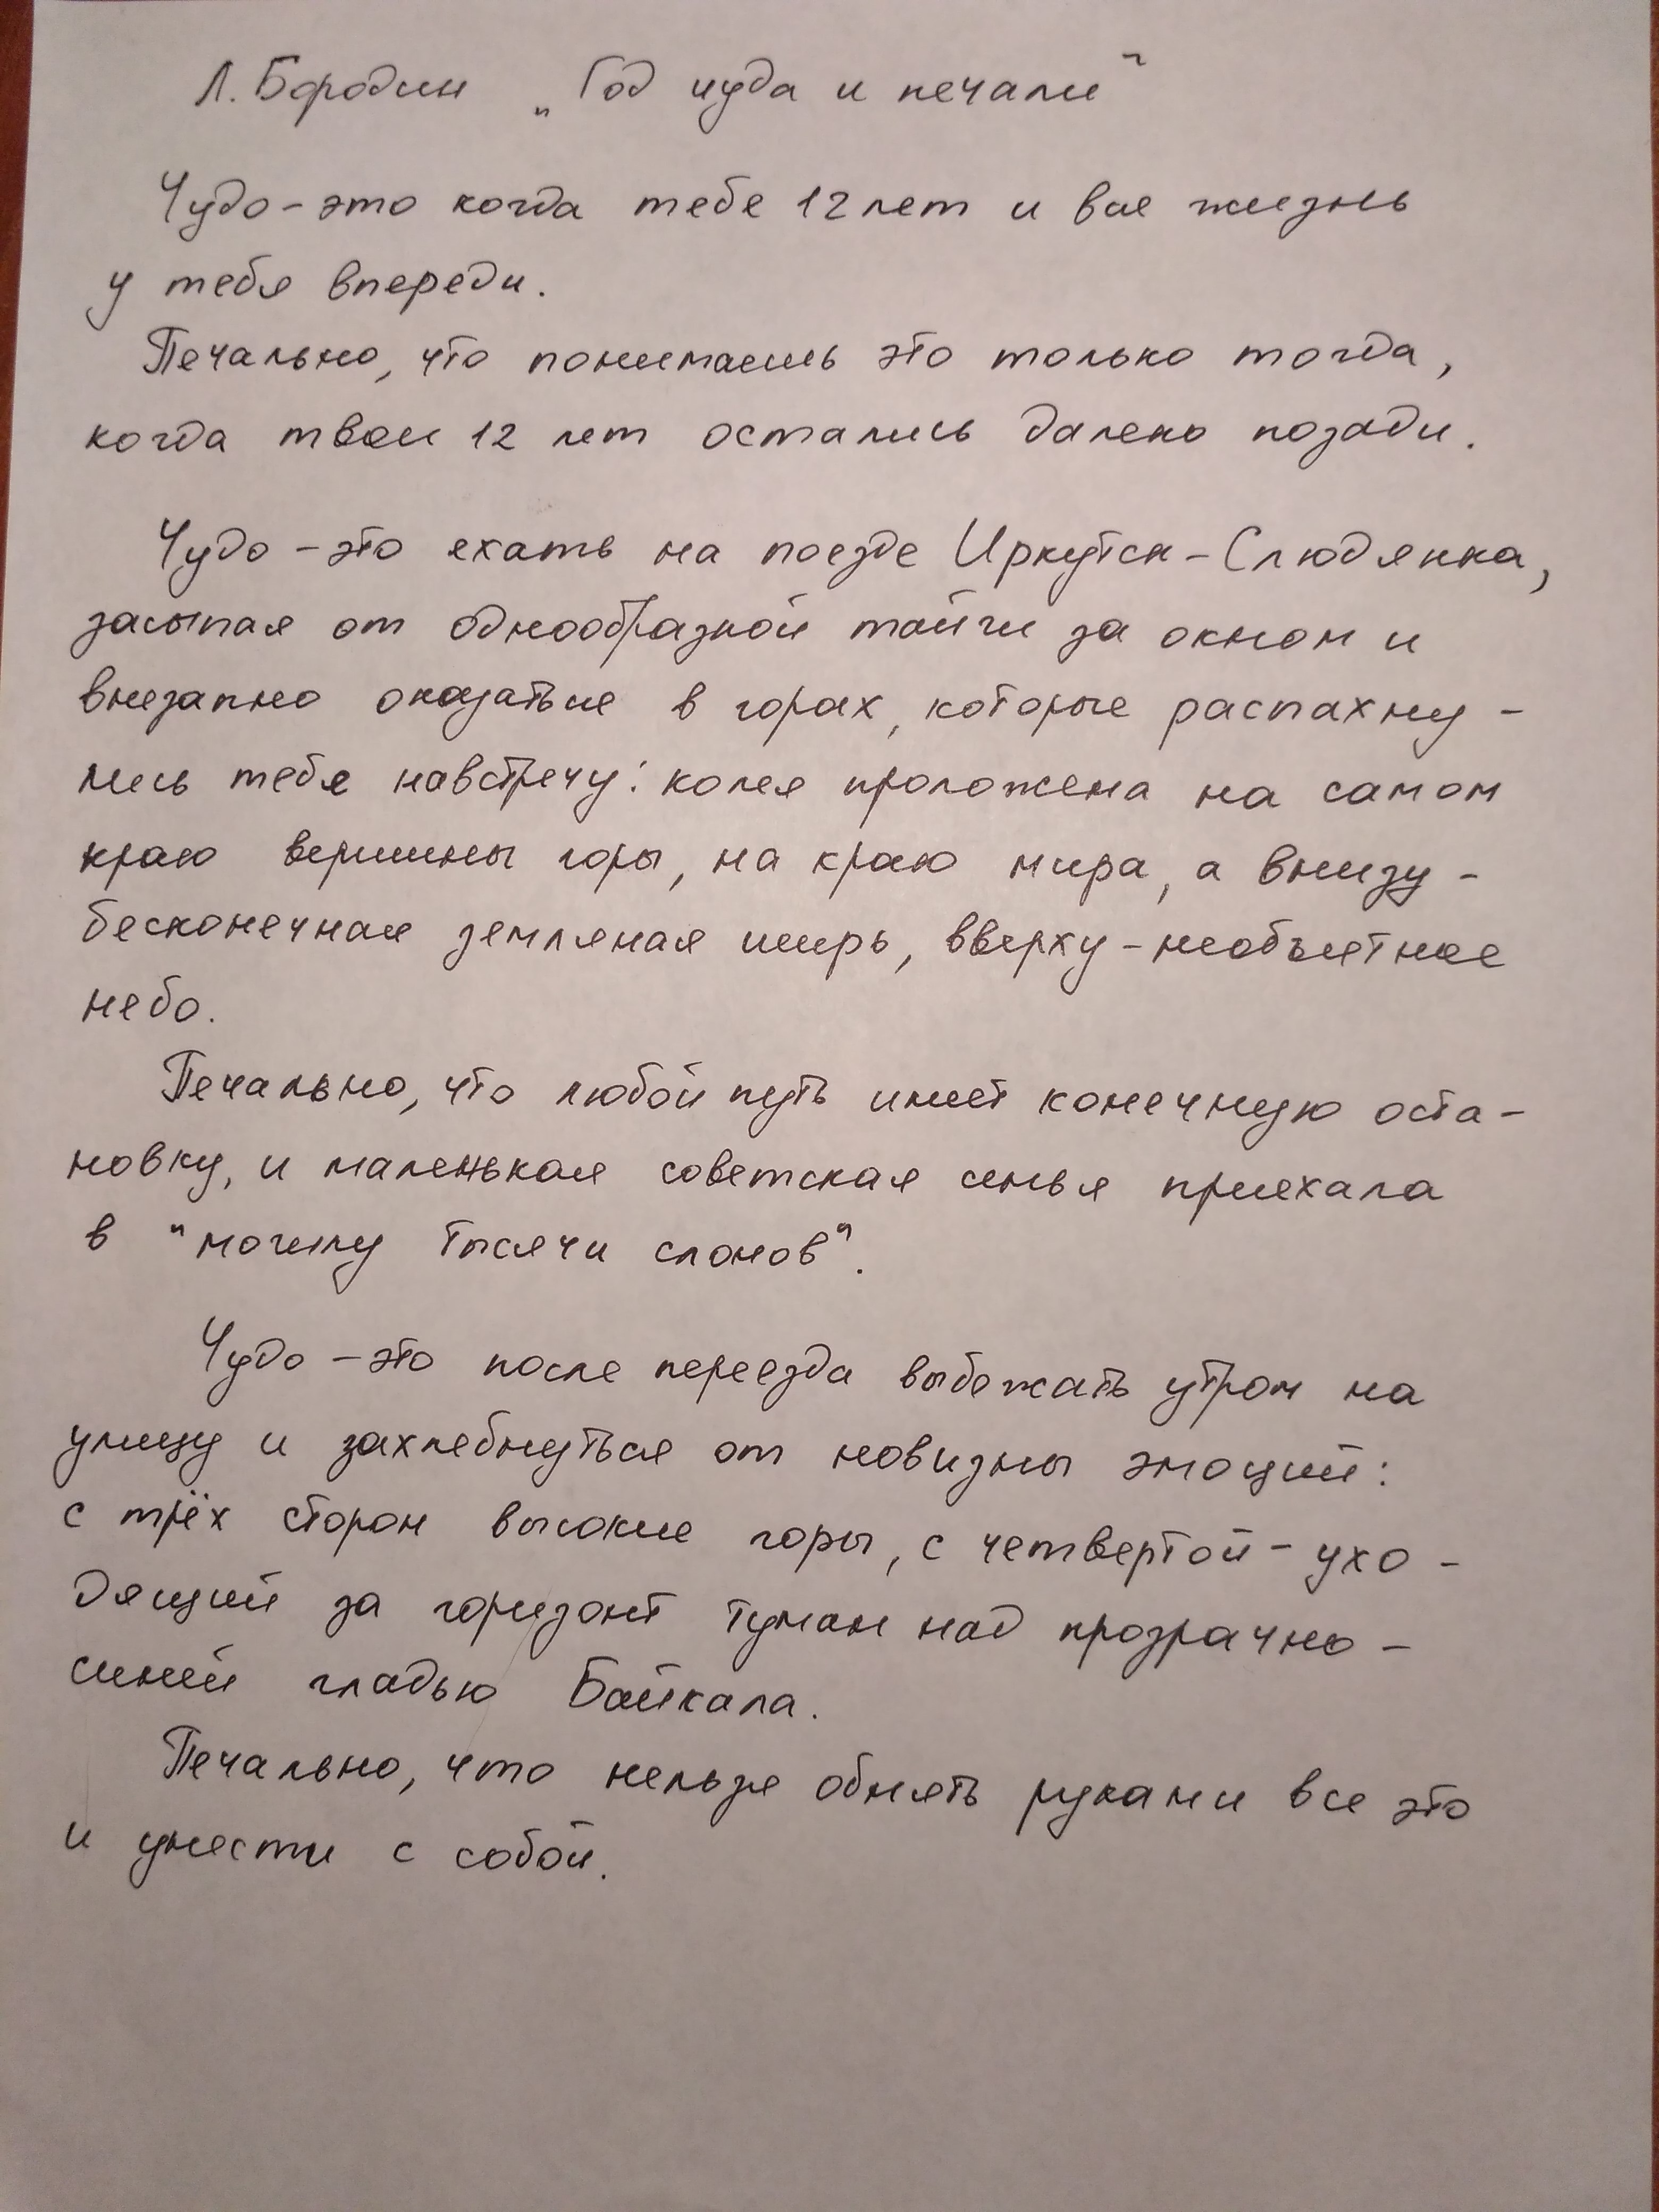 Л. Бородин „Год чуда и печали"
Чудо - это когда тебе 12 лет и вся жизнь
у тебя впереди.
Печально, что понимаешь это только тогда,
когда твои 12 лет остались далеко позади.
Чудо - это ехать на поезде Иркутск - Слюдянка,
засыпая от однообразной тайги за окном и
внезапно оказаться в горах, которые распахну-
лись тебе навстречу: колея проложена на самом
краю вершины горы, на краю мира, а внизу -
бесконечная земляная ширь, вверху - необъятное
небо.
Печально, что любой путь имеет конечную оста-
новку, и маленькая советская семья приехала
в "могилу тысячи слонов".
Чудо - это после переезда выбежать утром на
улицу и захлебнуться от новизны эмоций:
с трёх сторон высокие горы, с четвертой - ухо-
дящий за горизонт туман над прозрачно-
синей гладью Байкала.
Печально, что нельзя обнять руками все это
и унести с собой.